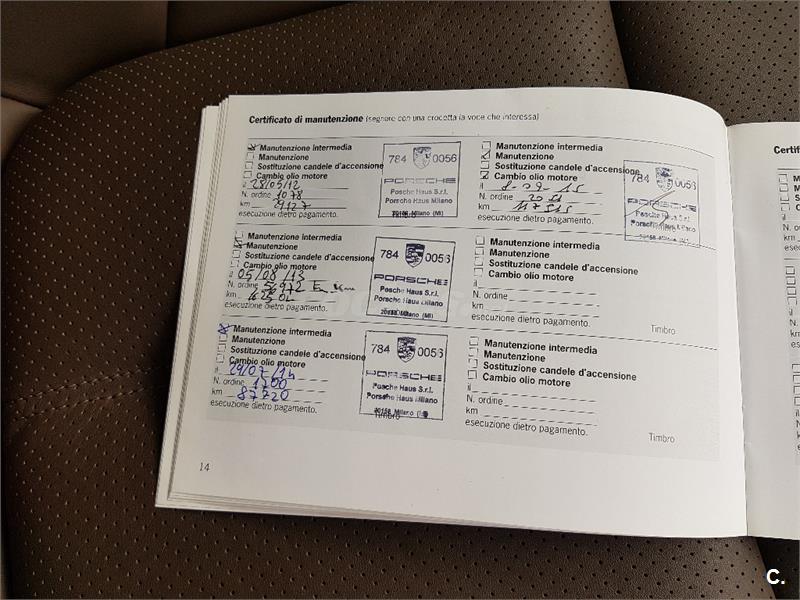 Certificato di manutenzione (segnare con una crocetta la voce che interessa)
Manutenzione intermedia
Manutenzione
Sostituzione candele d'accensione
Cambio olio motore
il 28/05/12
N. ordine 1078
km 29127
esecuzione dietro pagamento.
784 0056
PORSCHE
Posche Haus S.r.l.
Porsche Haus Milano
20158 Milano (MI)
Manutenzione intermedia
Manutenzione
Sostituzione candele d'accensione
Cambio olio motore
il 8-09-15
N. ordine
km 117515
esecuzione dietro pagamento.
784 0056
PORSCHE
Posche Haus S.r.l.
Porsche Haus Milano
20158 Milano (MI)
Manutenzione intermedia
Manutenzione
Sostituzione candele d'accensione
Cambio olio motore
il 05/08/13
N. ordine
km
esecuzione dietro pagamento.
784 0056
PORSCHE
Posche Haus S.r.l.
Porsche Haus Milano
20158 Milano (MI)
Manutenzione intermedia
Manutenzione
Sostituzione candele d'accensione
Cambio olio motore
il
N. ordine
km
esecuzione dietro pagamento.
Timbro
Manutenzione intermedia
Manutenzione
Sostituzione candele d'accensione
Cambio olio motore
il 29/07/14
N. ordine 1700
km 87720
esecuzione dietro pagamento.
784 0056
PORSCHE
Posche Haus S.r.l.
Porsche Haus Milano
20158 Milano (MI)
Timbro
Manutenzione intermedia
Manutenzione
Sostituzione candele d'accensione
Cambio olio motore
il
N. ordine
km
esecuzione dietro pagamento.
Timbro
14
C.